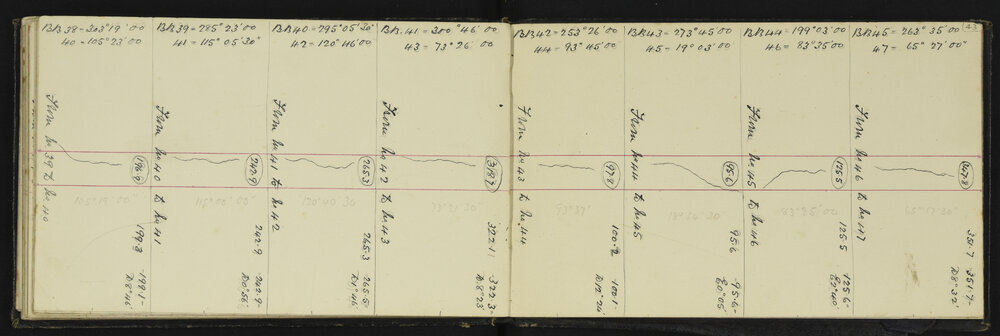 BR 38 = 303° 19' 00
40 = 105° 23' 00
From No 39 to No 40
196.9
105° 19' 00"
199.3 199.1
D 8° 46'
BR 39 = 285° 23' 00
41 = 115° 05' 30"
From No 40 to No 41
242.9
115° 00' 00"
242.9 242.9
D 0° 56'
BR 40 = 295° 05' 30"
42 = 120° 46' 00
From No 41 to No 42
265.3
120° 40' 30
265.3 265.5
D 1° 46'
BR. 41 = 300° 46' 00
43 = 73° 26' 00
From No 42 to No 43
319.7
73° 21' 30
322.1 322.3
D 8° 23'
BR 42 = 253° 26' 00
44 = 93° 45' 00
From No 43 to No 44
97.8
93° 37'
100.2 100.1
D 12° 21'
BR 43 = 273° 45' 00
45 = 19° 03' 00
From No 44 to No 45
95.6
18° 56' 30
95.6 95.6
E 0° 05'
BR 44 = 199° 03' 00
46 = 83° 35' 00
From No 45 to No 46
125.5
83° 25' 00
125.5 125.6
E 0° 40'
43
BR 45 = 263° 35' 00
47 = 65° 27' 00"
From No 46 to No 47
347.8
65° 17' 30"
351.7 351.7
D 8° 32'